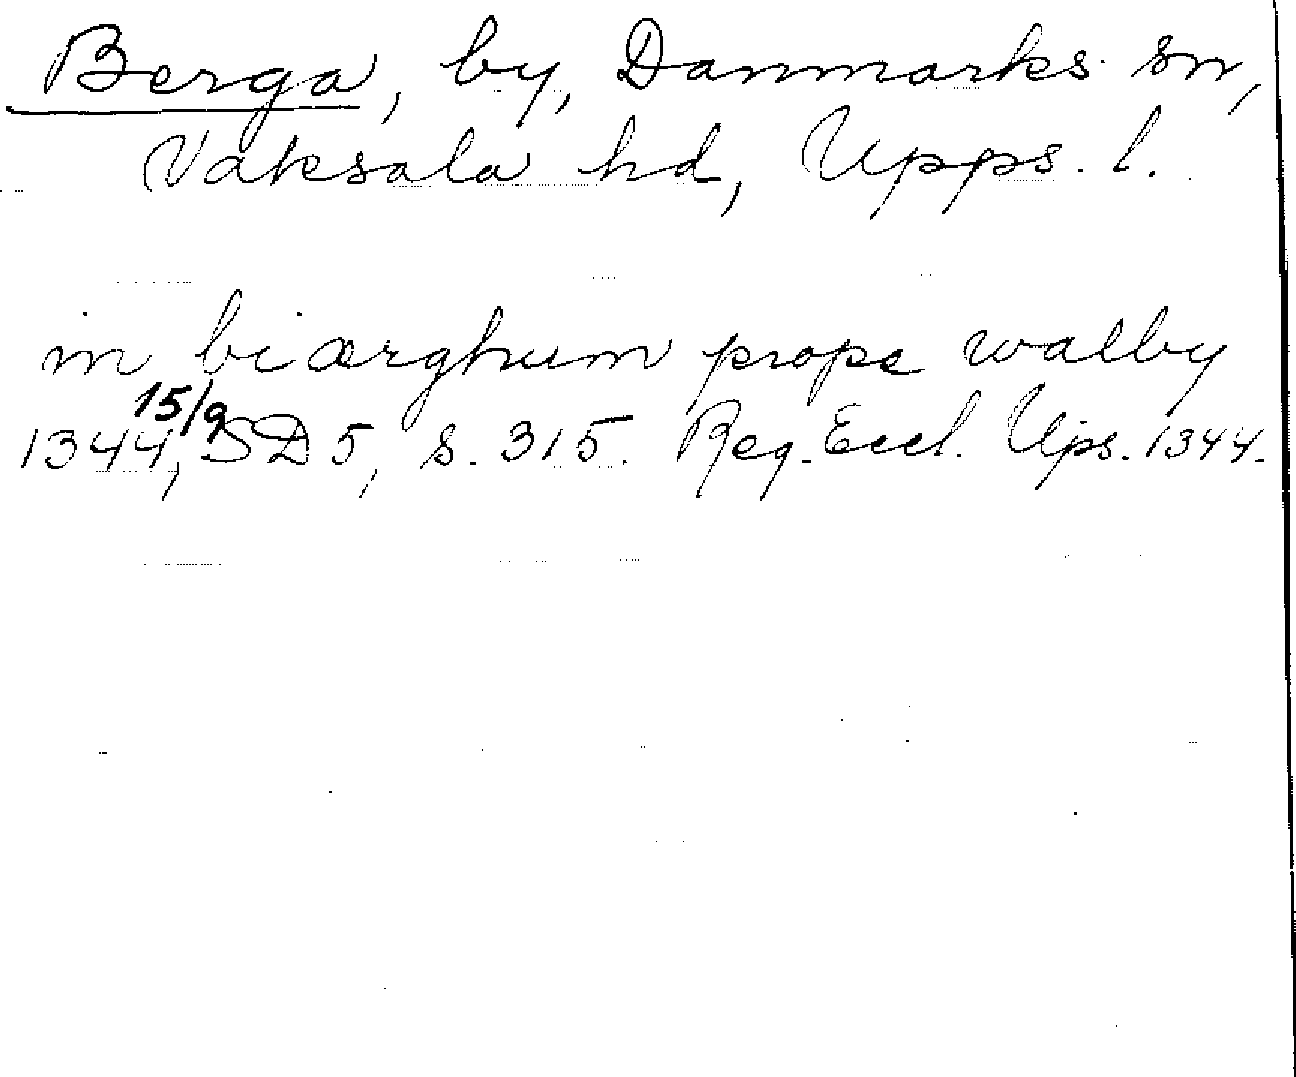 Berga, by, Danmarks sn,
Vaksala hd, Upps. l.
in biærghum prope walby
15/9
1344, SD 5, s. 315. Reg. Eccl. Ups. 1344.